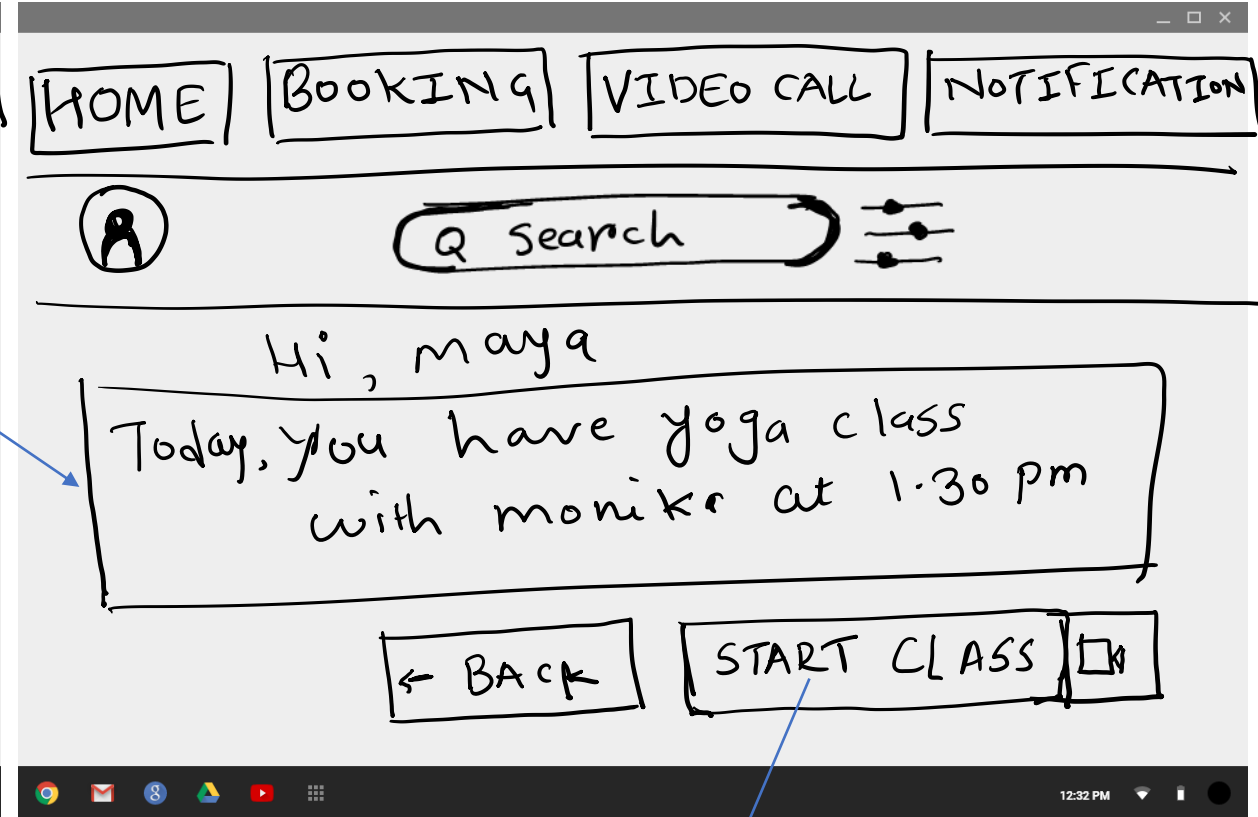 HOME BOOKING VIDEO CALL NOTIFICATION
search
Hi, maya
Today, you have yoga class
with monika at 1.30 pm
← BACK START CLASS
12:32 PM